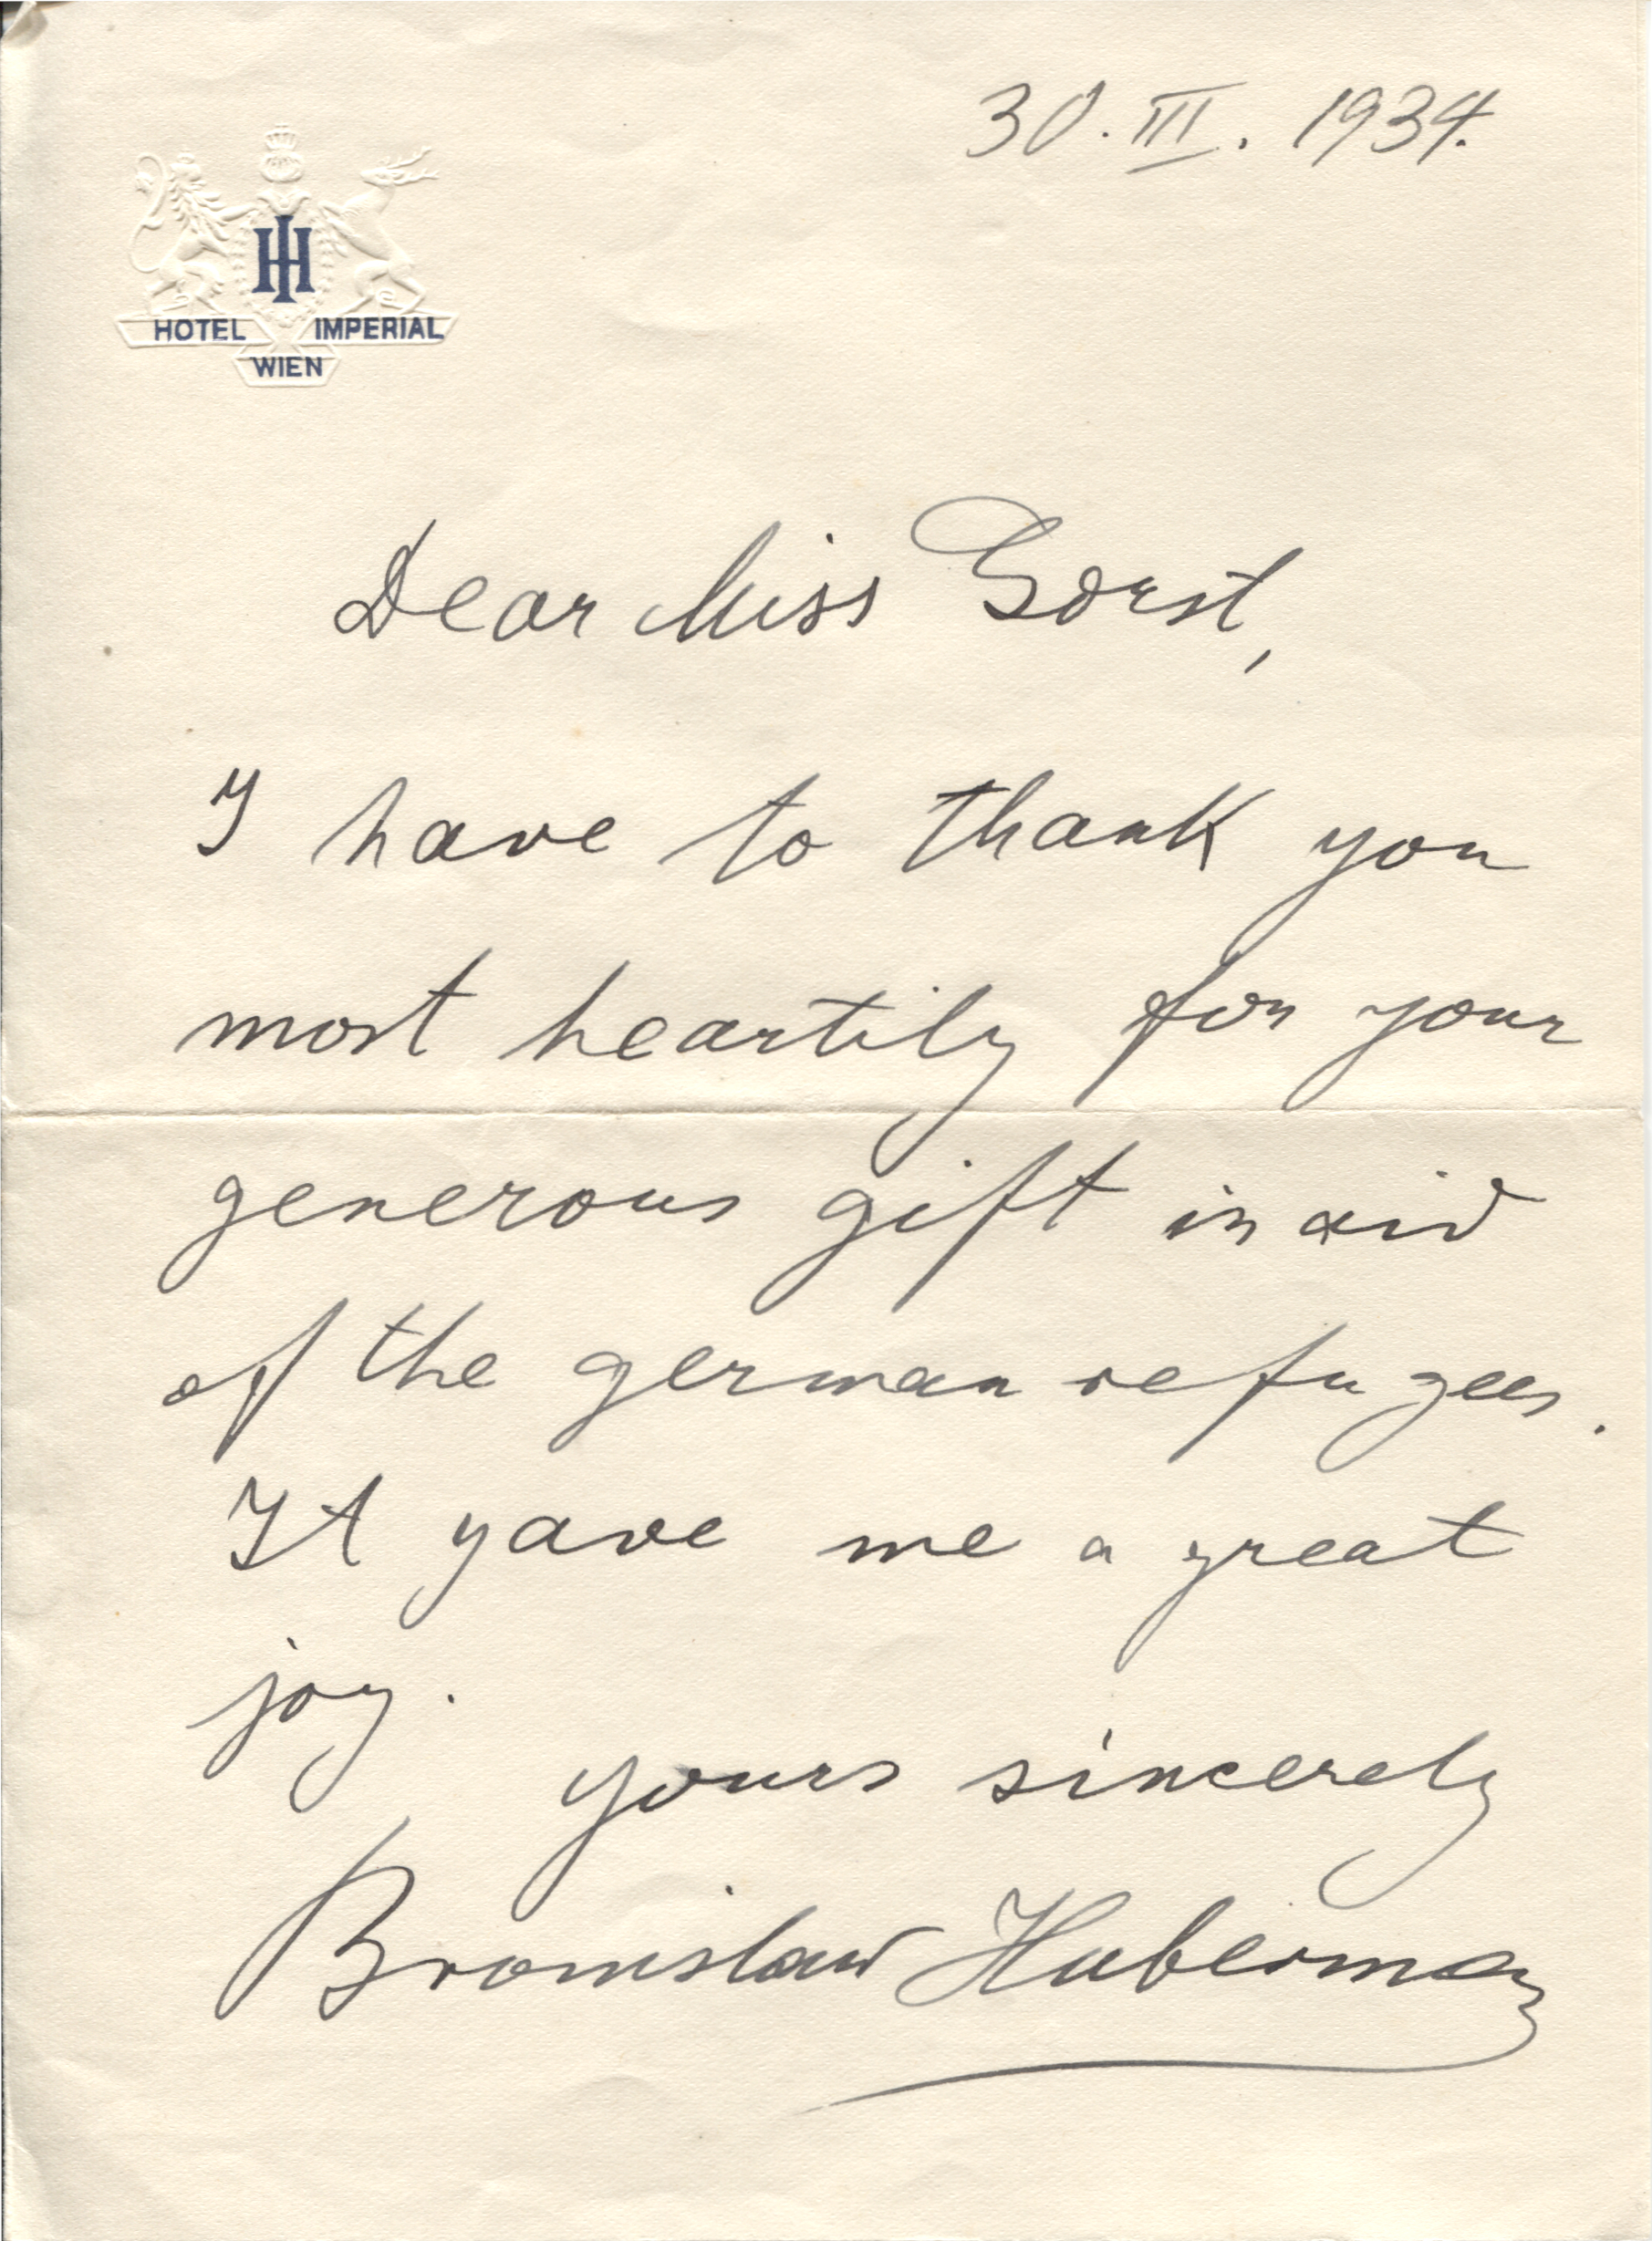 30. III. 1934.
IH
HOTEL IMPERIAL
WIEN
Dear Miss Gorst,
I have to thank you
most heartily for your
generous gift in aid
of the german refugees.
It gave me a great
joy.
yours sincerely
Bronislaw Huberman